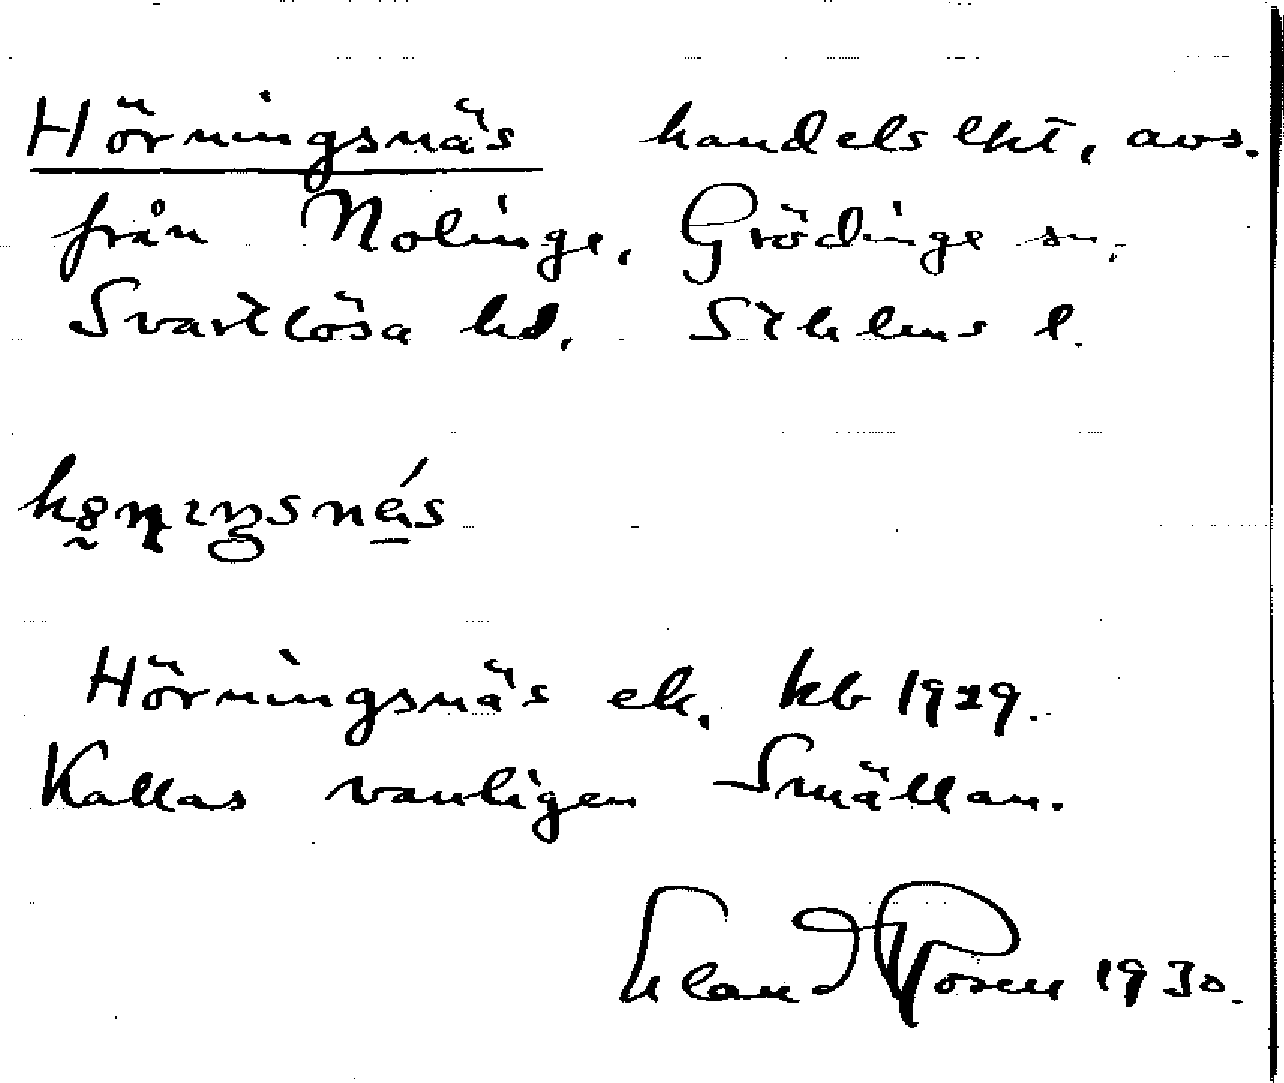 Hörningsnäs handelslht, avs.
från Nolinge, Grödinge sn,
Svartlösa hd, Sthlms l.
Hörningsnäs ek. kb 1929.
Kallas vanligen Smällan.
1930.